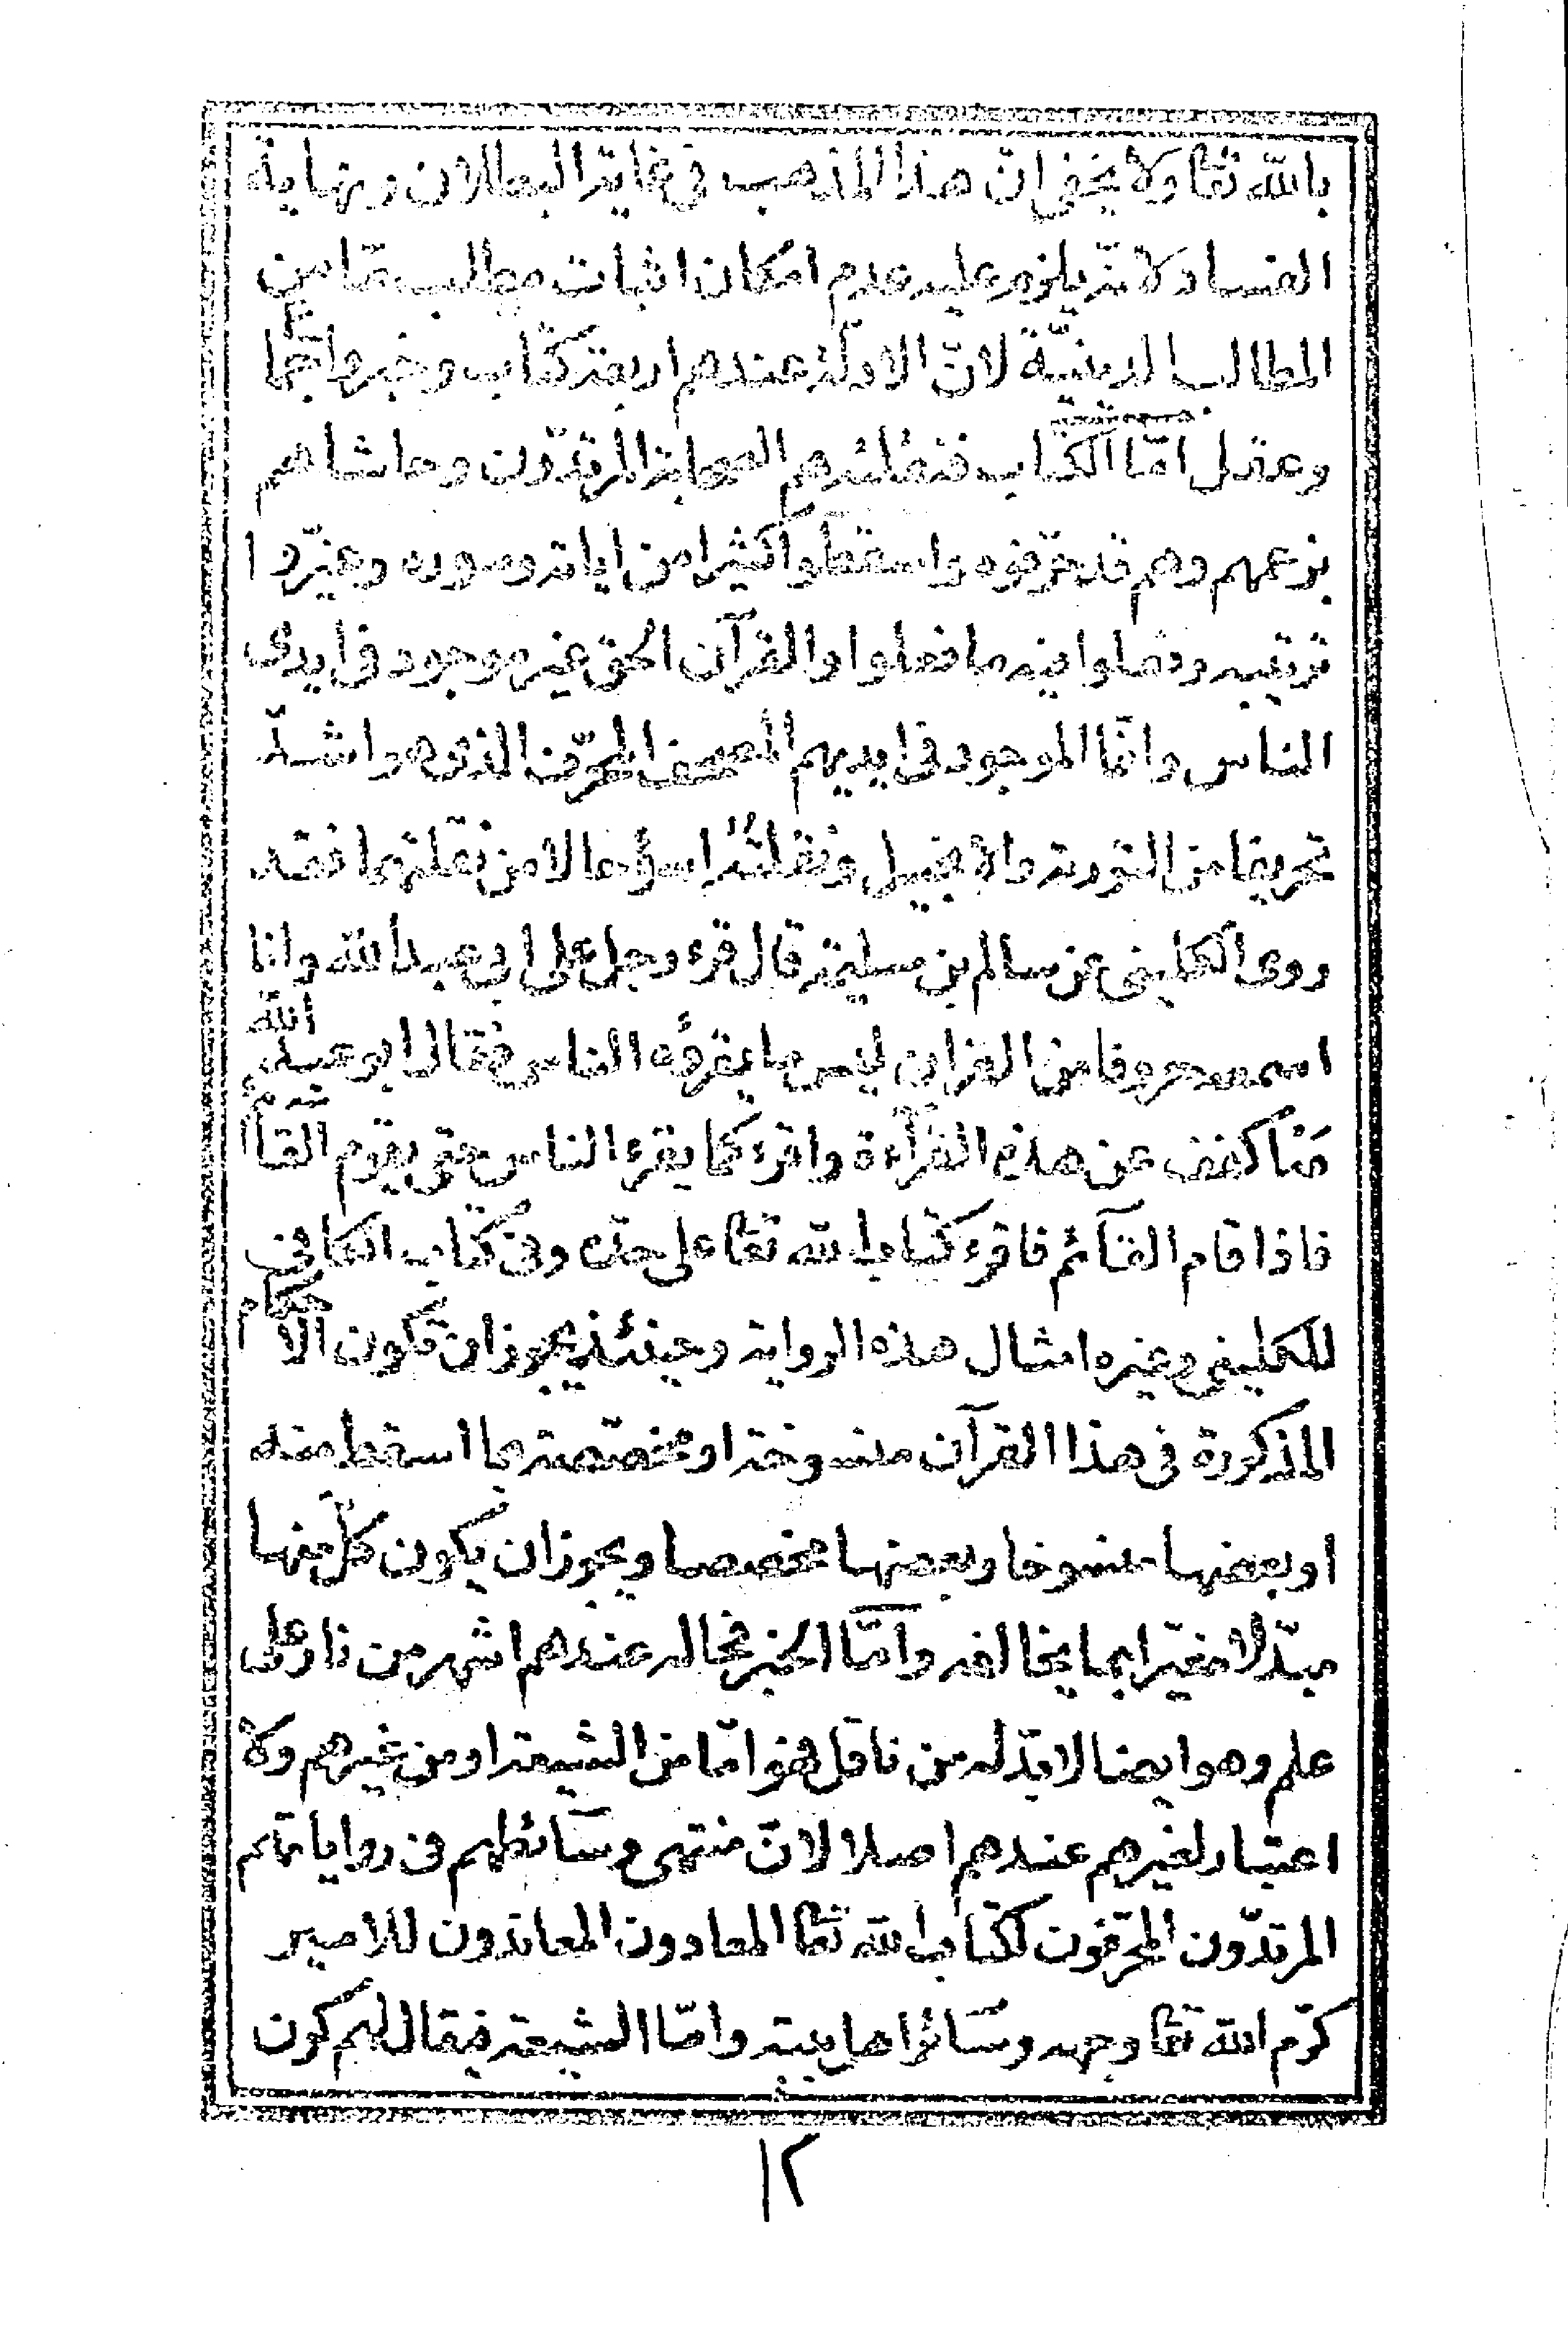 بالله تعا ولا يخفى انّ هذا المذهب فى غاية البطلان ونهاية
الفساد لانّه يلزم عليه عدم امكان اثبات مطلب ممّا من
المطالب الدينيّة لانّ الادلّة عندهم اربعة كتاب وخبر واجماع
وعقل امّا الكتاب فنقلته هم الصحابة المرتدّون وحاشاهم
بزعمهم وهم قد حرّفوه واسقطوا كثيرا من اياته وسوره وغيّروا
ترتيبه وفعلوا فيه ما فعلوا والقرآن الحق غير موجود فى ايدى
الناس وانّما الموجود فى ايديهم المصحف المحرّف الذى هو اشدّ
تحريفا من التورية والانجيل ونقلته اسؤ حالا من نقلتهما فقد
روى الكلينى عن سالم بن مسلمة قال قرء رجل على ابى عبد الله وانا
اسمع حروفا من القران ليس ما يقرؤه الناس فقال ابو عبد الله
مه اكفف عن هذه القرآءة واقرء كما يقرء الناس حتى يقوم القائم
فاذا قام القآئم فاقرء كتاب الله تعا على حدّه وفى كتاب الكافى
للكلينى وغيره امثال هذه الرواية وحينئذ يجوز ان تكون الاحكام
المذكورة فى هذا القرآن منسوخة او مخصّصة بما اسقط منه
او بعضها منسوخا وبعضها مخصصا ويجوز ان يكون كلّ منها
مبدّلا مغيّرا بما يخالفه وامّا الخبر فحاله عندهم اشهر من نار على
علم وهو ايضا لا بدّ له من ناقل فهو امّا من الشيعة او من غيرهم ولا
اعتبار لغيرهم عندهم اصلا لانّ منتهى وسآئطهم فى رواياتهم
المرتدّون المحرّفون لكتاب الله تعا المعادون المعاندون للامير
كرّم الله تعا وجهه وسآئر اهل بيته وامّا الشيعة فيقال لهم كون
١٢